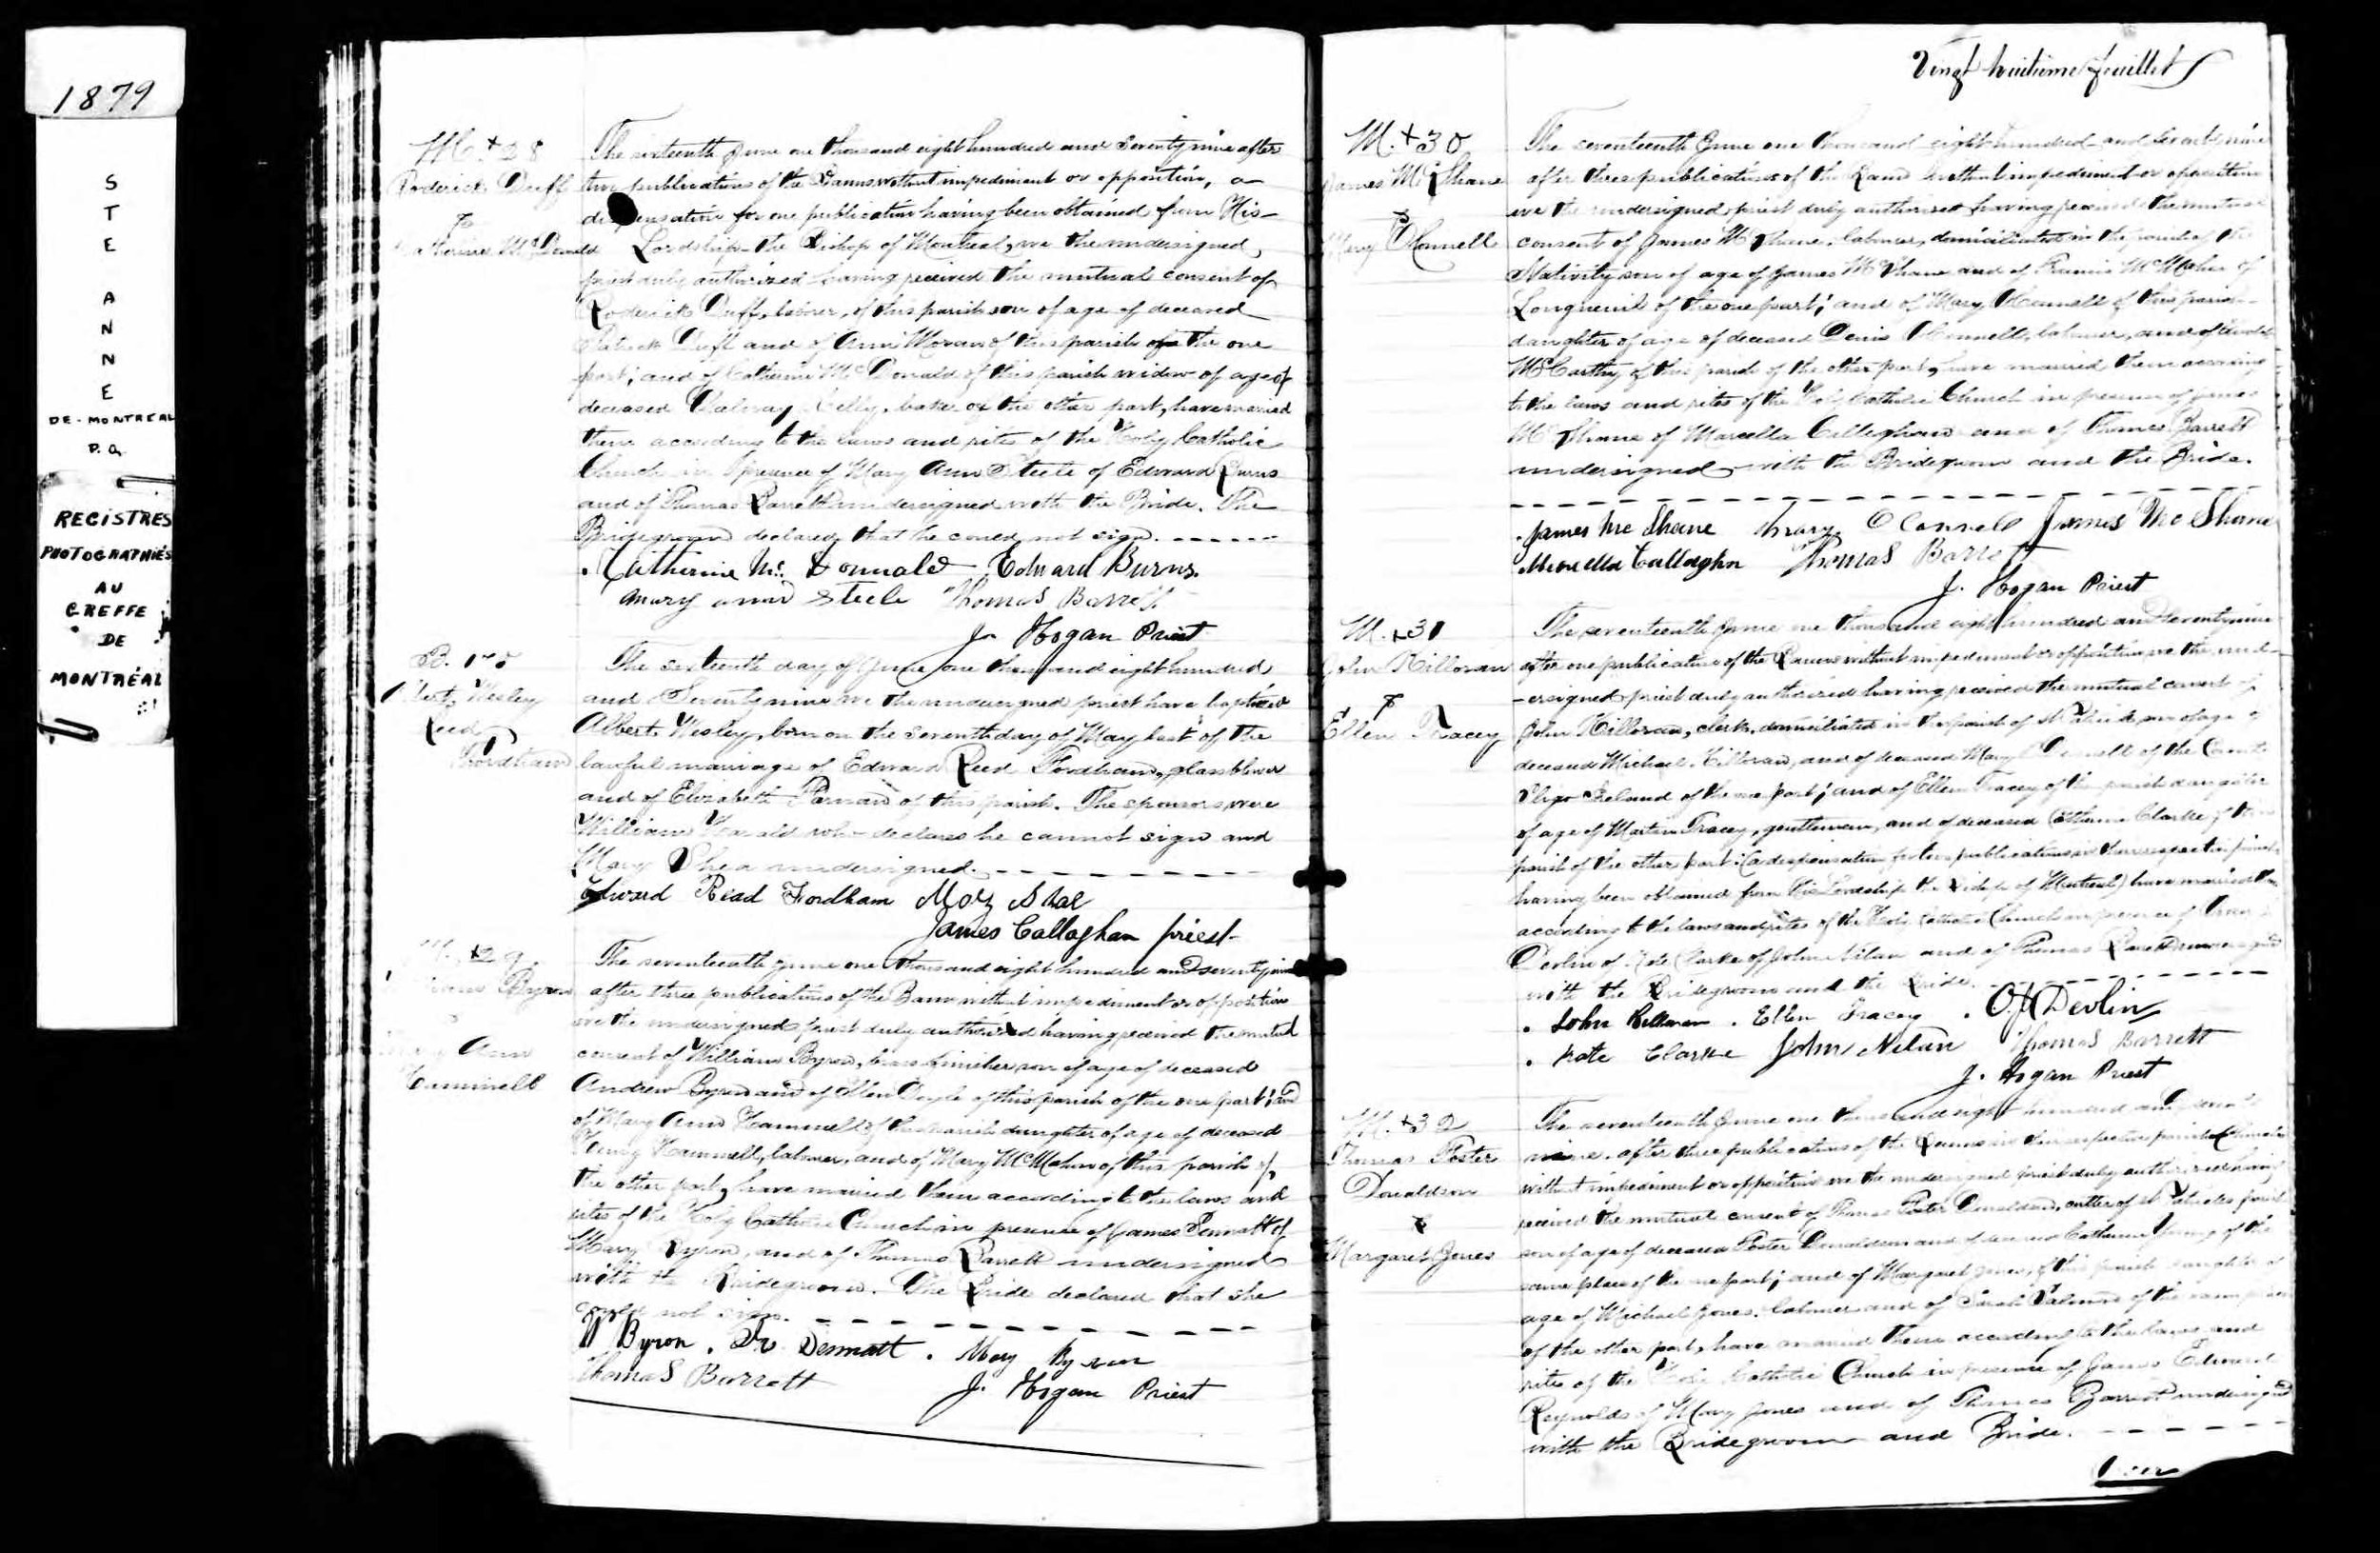 1879
STE ANNE
DE-MONTREAL
P.Q.
REGISTRES
PHOTOGRAPHIÉS
AU
GREFFE
DE
MONTRÉAL
M. + 28
Roderick Duff
&
Catherine McDonald
The sixteenth June one thousand eight hundred and Seventy nine after
two publications of the Banns without impediment or opposition, a
dispensation for one publication having been obtained from His
Lordship the Bishop of Montreal, we the undersigned
priest duly authorized having received the mutual consent of
Roderick Duff, laborer, of this parish son of age of deceased
Patrick Duff and of Ann Moran of this parish of the one
part; and of Catherine McDonald of this parish widow of age of
deceased Kelly, baker of the other part, have married
them according to the laws and rites of the Holy Catholic
Church in presence of Mary Ann Steele of Edward Burns
and of Thomas Barrett undersigned with the Bride. The
Bridegroom declared that he could not sign.
Catherine Mc Donnald Edward Burns.
Mary ann Steele Thomas Barrett
J. Hogan Priest
B.
Albert Wesley
Reed
Fordham
The sixteenth day of June one thousand eight hundred
and Seventy nine we the undersigned priest have baptized
Albert Wesley, born on the seventh day of May last of the
lawful marriage of Edward Reed Fordham, glassblower
and of Elizabeth of this parish. The sponsors were
William who declares he cannot sign and
Mary Shea undersigned.
Edward Read Fordham Mary Shae
James Callaghan priest
M. + 29
William Byron
&
Mary Ann
Hammell
The seventeenth June one thousand eight hundred and seventy nine
after three publications of the Banns without impediment or opposition
we the undersigned priest duly authorized having received the mutual
consent of William Byron, brass finisher son of age of deceased
Andrew Byron and of Ellen Doyle of this parish of the one part; and
of Mary Ann Hammell of this parish daughter of age of deceased
Henry Hammell, laborer, and of Mary McMahon of this parish of
the other part, have married them according to the laws and
rites of the Holy Catholic Church in presence of James Dermatt of
Mary Byron, and of Thomas Barrett undersigned
with the Bridegroom. The Bride declared that she
could not sign.
W Byron. Dermatt. Mary Byron
Thomas Barrett J. Hogan Priest
Vingt huitième feuillet
M. + 30
James McShane
&
Mary O'Connell
The seventeenth June one thousand eight hundred and seventy nine
after three publications of the Banns without impediment or opposition
we the undersigned priest duly authorised having received the mutual
consent of James McShane, laborer, domiciliated in the parish of the
Nativity son of age of James McShane and of of
Longueuil of the one part; and of Mary O'Connell of this parish
daughter of age of deceased Denis O'Connell, laborer, and of
McCarthy of this parish of the other part, have married them according
to the laws and rites of the Holy Catholic Church in presence of James
McShane of Marcella Callaghan and of Thomas Barrett
undersigned with the Bridegroom and the Bride.
James Mc Shane Mary O Connell James Mc Shane
Marcella Callaghn Thomas Barrett
J. Hogan Priest
M. + 31
John Killoran
&
Ellen Tracey
The seventeenth June one thousand eight hundred and seventy nine
after one publication of the Banns without impediment or opposition we the und-
-ersigned priest duly authorized having received the mutual consent of
John Killoran, clerk, domiciliated in the parish of St Patrick son of age of
deceased Michael Killoran, and of deceased Mary of the County
Sligo Ireland of the one part; and of Ellen Tracey of this parish daughter
of age of Martin Tracey, gentleman, and of deceased Catherine Clarke of this
parish of the other part: (a dispensation for two publications in their respective parishes
having been obtained from His Lordship the Bishop of Montreal) have married them
according to the laws and rites of the Holy Catholic Church in presence of
Devlin of Kate Clarke of John Nilan and of Thomas Barrett undersigned
with the Bridegroom and the Bride.
John Killoran. Ellen Tracey. Devlin
Kate Clarke John Nilan Thomas Barrett
J. Hogan Priest
M. + 32
Thomas Foster
Donaldson
&
Margaret Jones
The seventeenth June one thousand eight hundred and seventy
nine. after three publications of the Banns in their respective parish Churches
without impediment or opposition we the undersigned priest duly authorized having
received the mutual consent of Thomas Foster Donaldson, cutter of St Patricks parish
son of age of deceased Foster Donaldson and of deceased Catherine Young of the
same place of the one part; and of Margaret Jones, of this parish daughter of
age of Michael Jones, laborer and of Sarah of the same place
of the other part, have married them according to the laws and
rites of the Holy Catholic Church in presence of James Edward
Reynolds of Mary Jones and of Thomas Barrett undersigned
with the Bridegroom and Bride.
Over